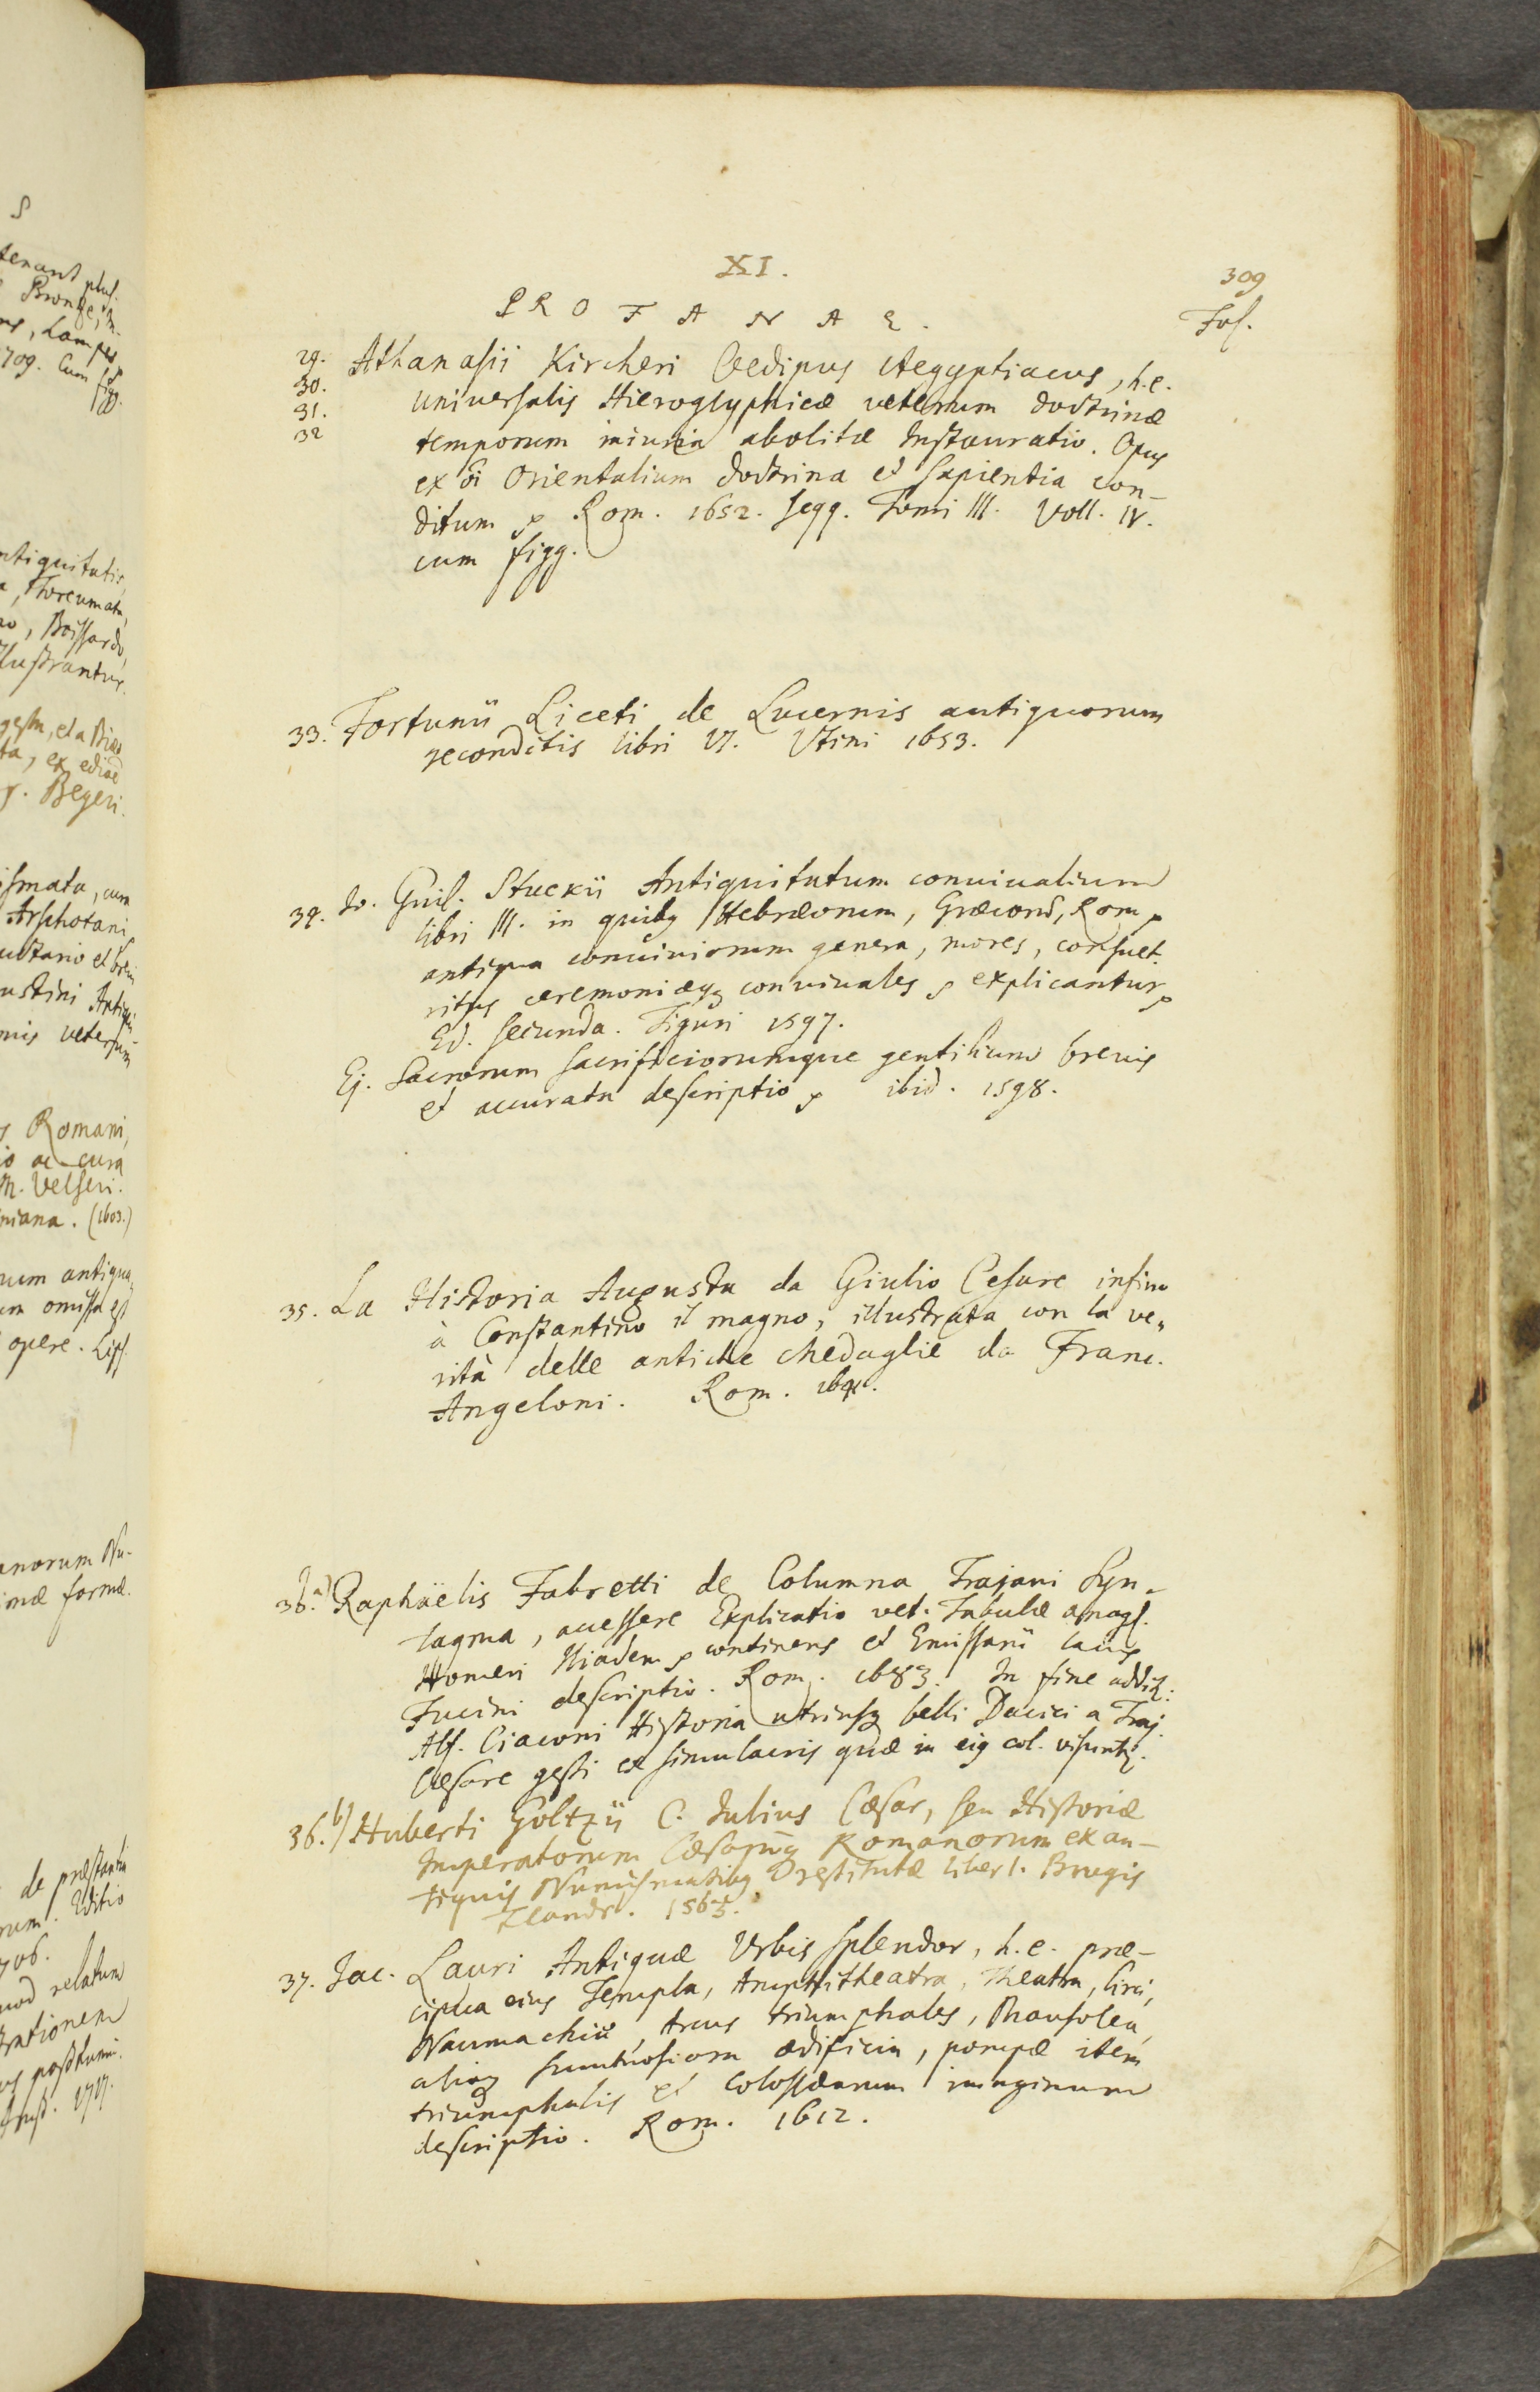 XI.
309
PROFANAE.
Fol.
29. Athanasii Kircheri Oedipus Aegyptiacus, h.e.
30. universalis Hieroglyphicæ veterum doctrinæ
31. temporum iniuria abolitæ Instauratio. Opus
32 ex oi Orientalium doctrina et sapientia con-
ditum Rom. 1652. seqq. Tomi III. Voll. IV.
cum figg.
33. Fortunii Liceti de Lucernis antiquorum
reconditis libri VI. Utini 1653.
34. Io. Guil. Stuckii Antiquitatum conuiualium
libri III. in quibq Hebræorum, Græcorū, Rom
antiqua conuiuiorum genera, mores, consuet.
ritus ceremoniæqq conuiuales explicantur
Ed. secunda. Tiguri 1597.
Ej. Sacrorum sacrificiorumque gentilium breuis
et accurata descriptio ibid. 1598.
35. La Historia Augusta da Giulio Cesare infino
à Constantino il magno, illustrata con la ve„
rità delle antiche Medaglie da Franc.
Angeloni. Rom. 1641.
36. a) Raphaëlis Fabretti de Columna Trajani Syn-
tagma, accessere Explicatio vet. Tabulæ anagl.
Homeri Iliadem continens et Emissarii lacus
Fucini descriptio. Rom. 1683. In fine addit:
Alf. Ciaconi Historia utriusq belli Dacici a Traj.
Cæsare gesti ex simulacris quæ in eig col. visunt.
36. b) Huberti Goltzii C. Iulius Cæsar, seu Historiæ
Imperatorum Cæsarumq Romanorum ex an-
tiquis Numismatibq restitutæ liber I. Brugis
Flandr. 1563.
37. Jac. Lauri Antiquæ Urbis splendor, h.e. præ-
cipua eius Templa, Amphitheatra, Theatra, Circi,
Naumachiæ, Arcus triumphales, Mausolea,
aliaq sumtuosiora ædificia, pompæ item
triumphalis et colossæarum imaginum
descriptio. Rom. 1612.